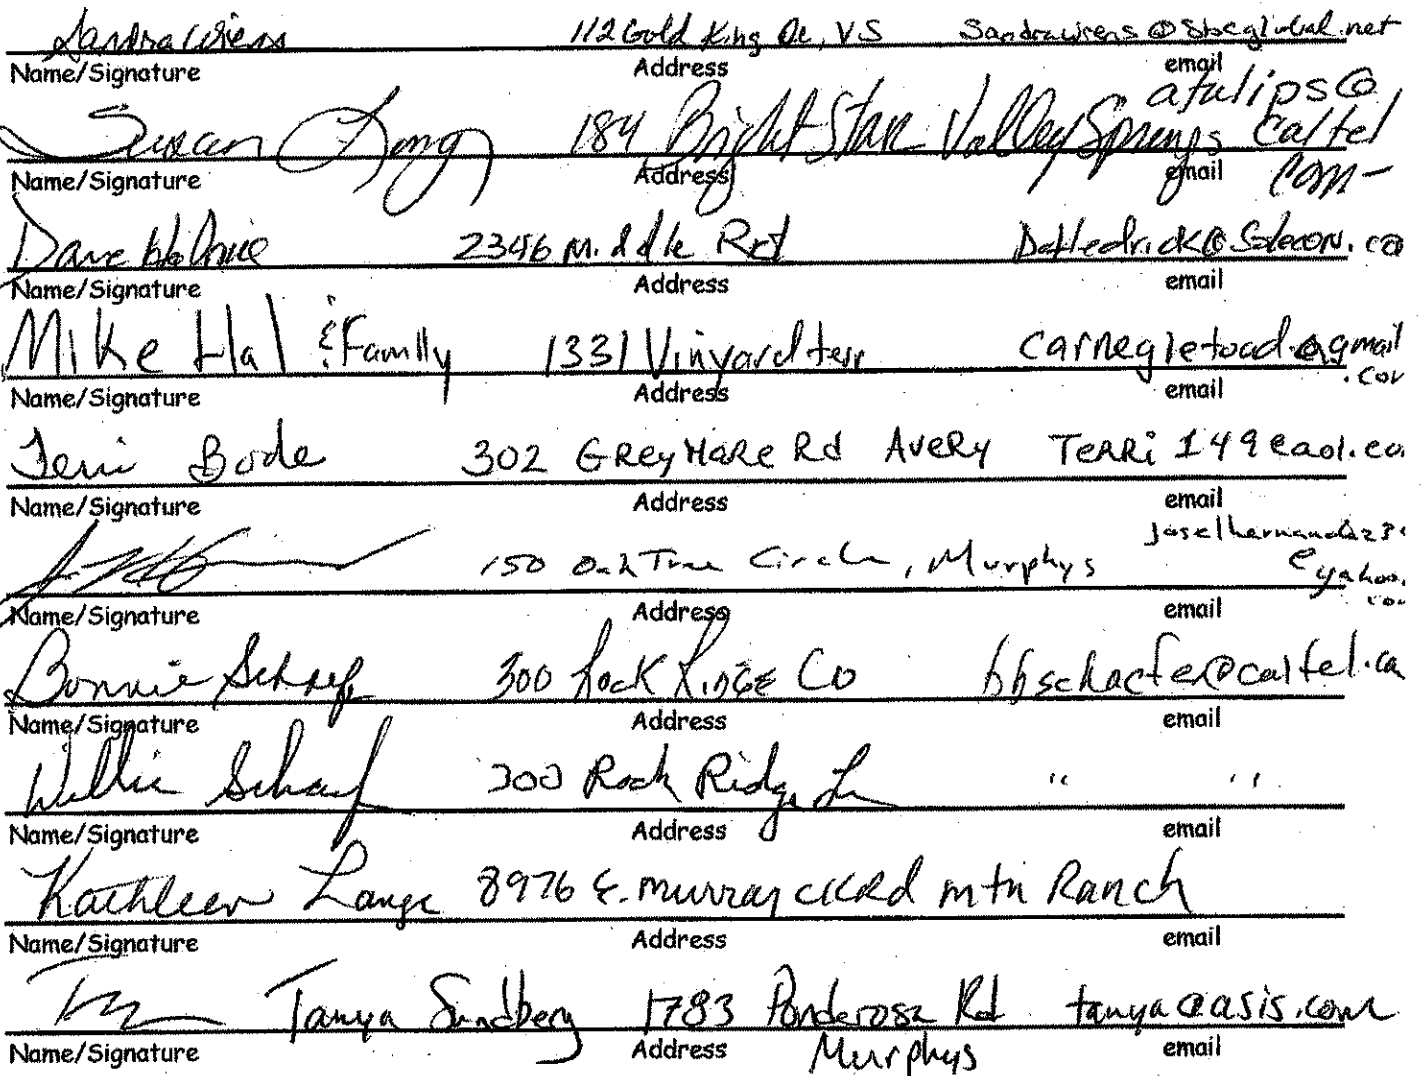 Sandra Wiens 112 Gold King Dr, VS Sandrawiens@sbcglobal.net
Name/Signature Address email
Susan Long 184 Bright Star Valley Springs atulips@
caltel
com
Name/Signature Address email
Dave 2346 Middle
Name/Signature Address email
Mike Hal & Family 1331 Vinyard terr carnegietoad@gmail
.com
Name/Signature Address email
Terri Bode 302 Grey Mare Rd Avery Terri149@aol.co
Name/Signature Address email
150 Oak Tree Circle, Murphys joselhernandez3
@yahoo.
com
Name/Signature Address email
Bonnie Schaef 300 Rock Ridge
Name/Signature Address email
Willie Schaef 300 Rock Ridge Ln " "
Name/Signature Address email
Kathleen Lange 8976 E. Murray ck Rd mtn Ranch
Name/Signature Address email
Tanya Sundberg 1783 Ponderosa Rd tanya@asis.com
Name/Signature Address email
Murphys